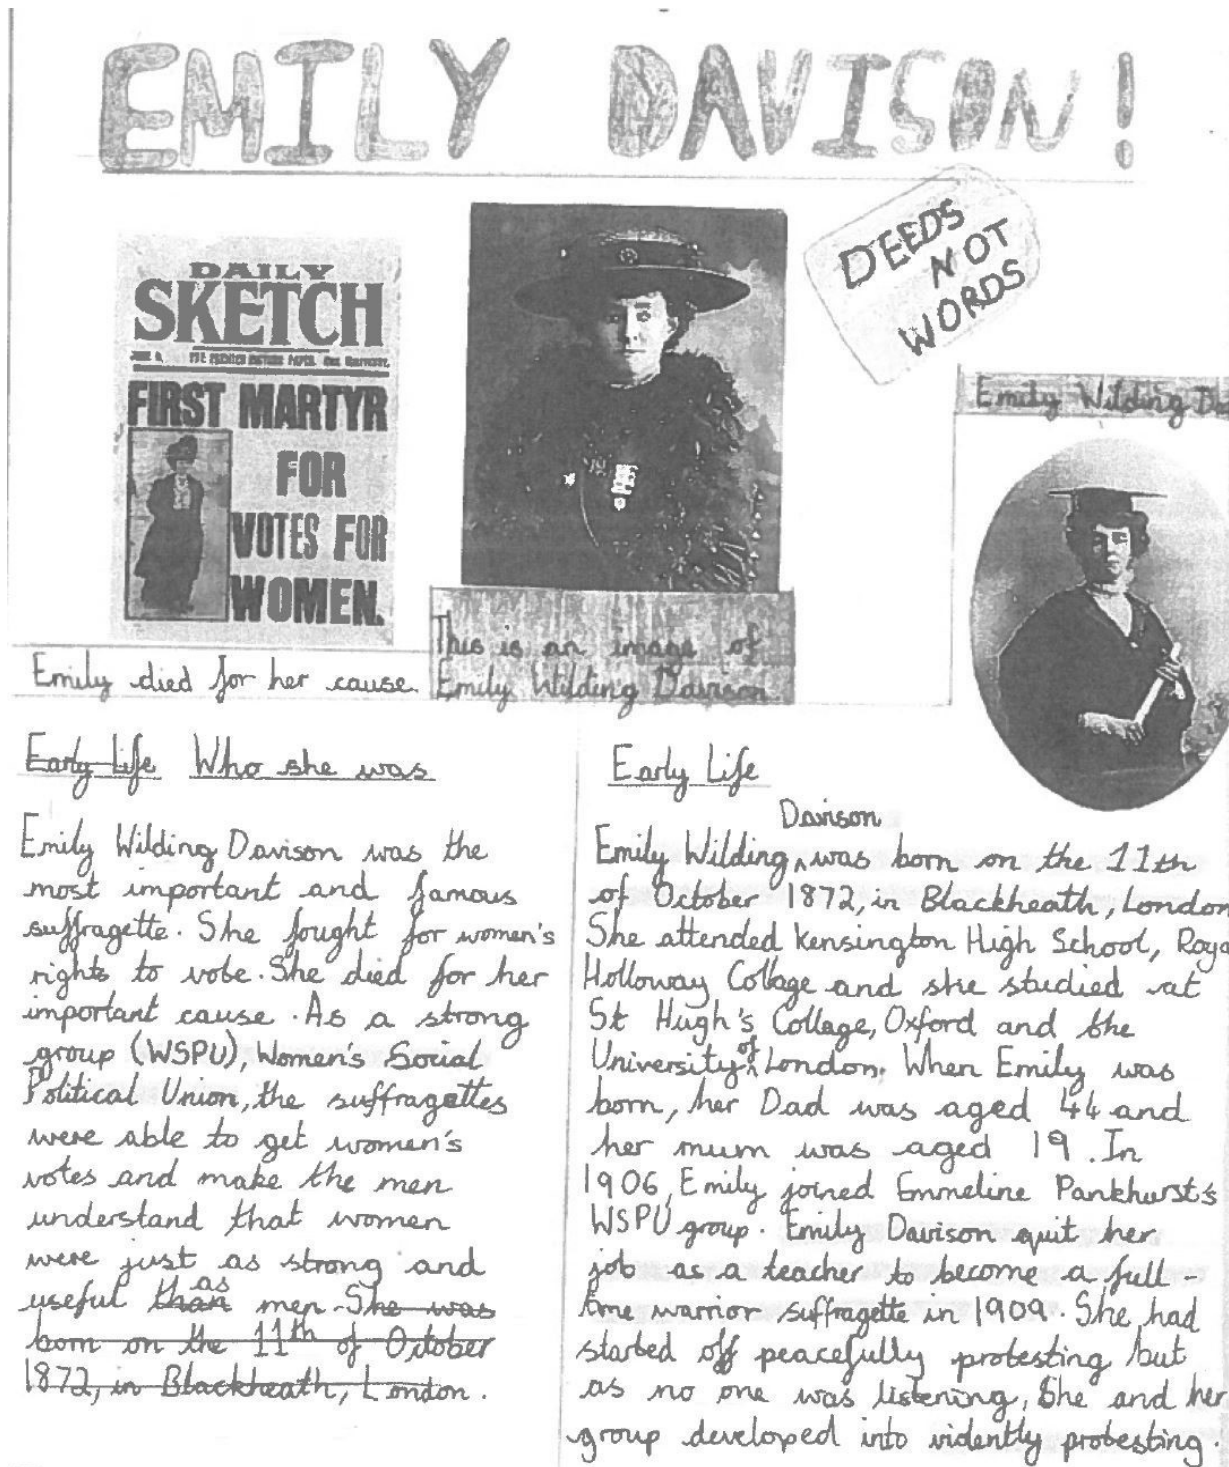 EMILY DAVISON!
DAILY
SKETCH
FIRST MARTYR
FOR
VOTES FOR
WOMEN.
DEEDS
NOT
WORDS
Emily Wilding
Emily died for her cause.
This is an image of
Emily Wilding Davison
Early Life Who she was
Emily Wilding Davison was the
most important and famous
suffragette. She fought for women's
rights to vote. She died for her
important cause. As a strong
group (WSPU), Women's Social
Political Union, the suffragettes
were able to get women's
votes and make the men
understand that women
were just as strong and
useful than as men. She was
born on the 11th of October
1872, in Blackheath, London.
Early Life
Emily Wilding Davison was born on the 11th
of October 1872, in Blackheath, London
She attended Kensington High School, Roya
Holloway Collage and she studied at
St Hugh's Collage, Oxford and the
University of London. When Emily was
born, her Dad was aged 44 and
her mum was aged 19. In
1906, Emily joined Emmeline Pankhurst's
WSPU group. Emily Davison quit her
job as a teacher to become a full-
time warrior suffragette in 1909. She had
started off peacefully protesting but
as no one was listening, She and her
group developed into vidently protesting.